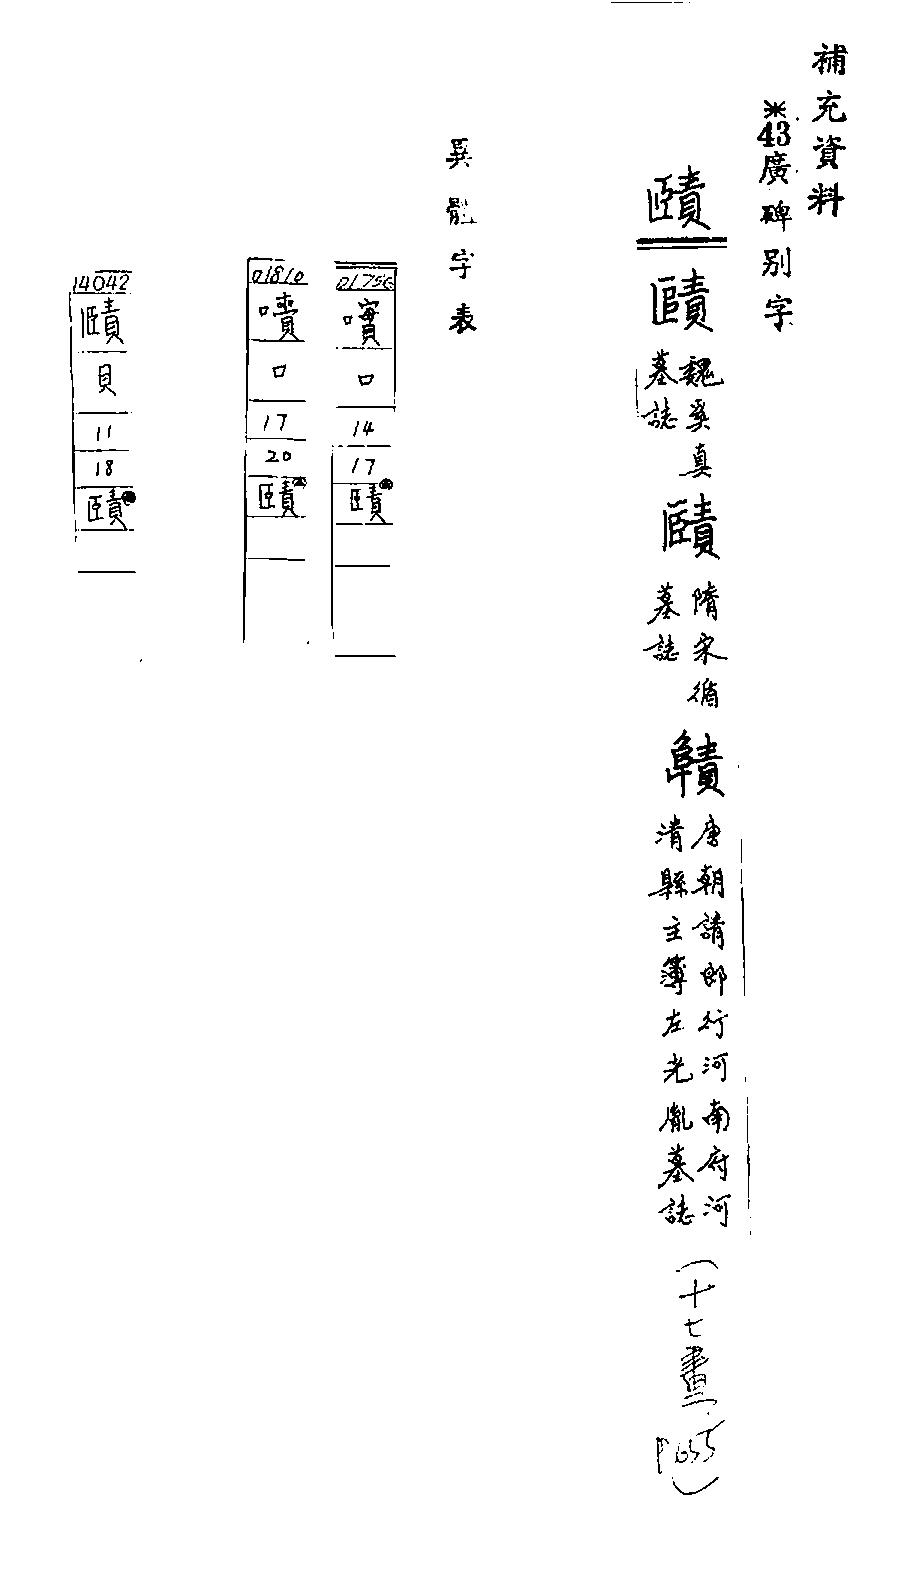 補充資料
※43廣碑別字
賾
賾
魏奚真
墓誌
賾
隋宋循
墓誌
唐朝請郎行河南府河
清縣主簿左光胤墓誌
(十七畫
P655)
異體字表
口
14
17
賾
01810
口
17
20
賾
14042
賾
貝
11
18
賾